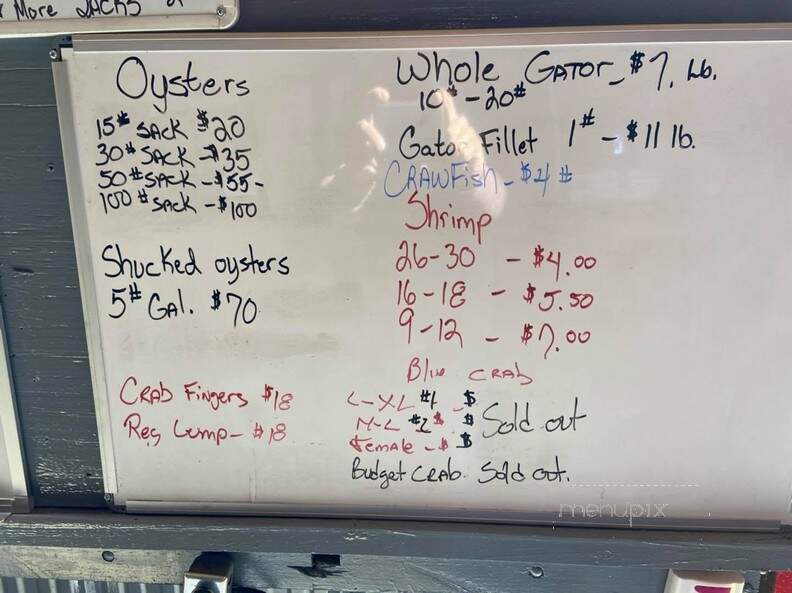 r More SACKS
Oysters
15# SACK $20
30# SACK -$35
50# SACK -$55-
100# SACK -$100
Shucked oysters
5# Gal. $70
CRAB Fingers $18
Reg Lump- $18
Whole GATOR - $7. Lb.
10# - 20#
Gator Fillet 1# - $11 lb.
CRAWFish - $4 #
Shrimp
26-30 - $4.00
16-18 - $5.50
9-12 - $7.00
Blue CRAB
L-XL #1 - $
M-L #2 $ $ Sold out
Female - $ $
Budget CRAB- Sold out.
menupix